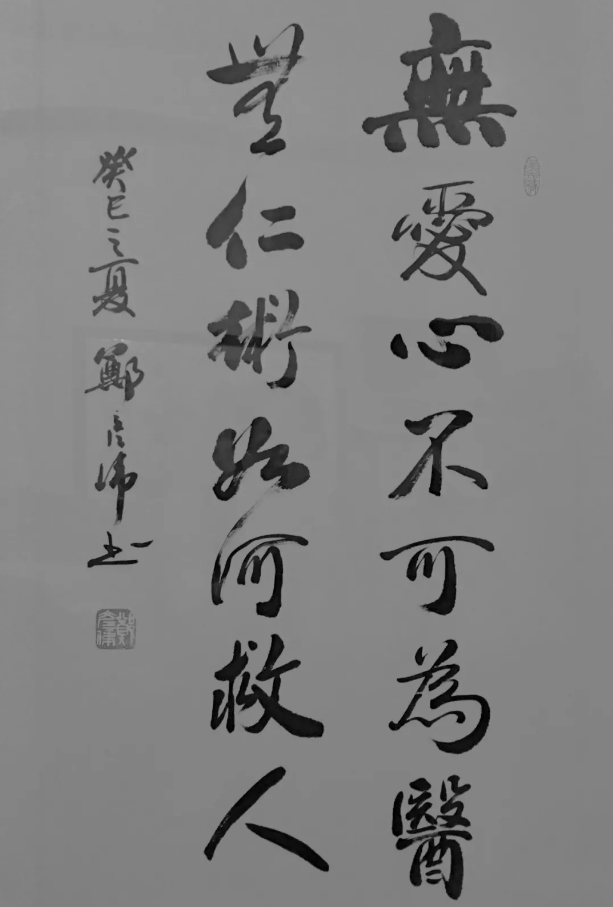 無愛心不可為醫
無仁術如何救人
癸巳之夏 鄭彦沛书